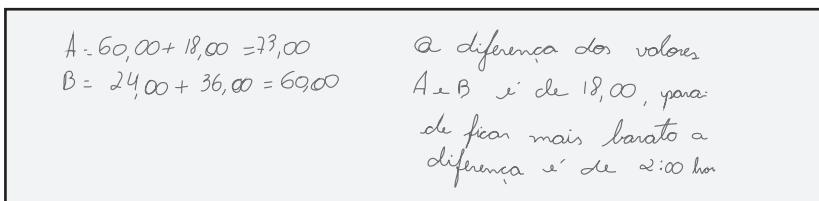 A = 60,00 + 18,00 = 73,00
B = 24,00 + 36,00 = 60,00
a diferença dos valores
A e B é de 18,00, para
de ficar mais barato a
diferença é de 2:00 hor